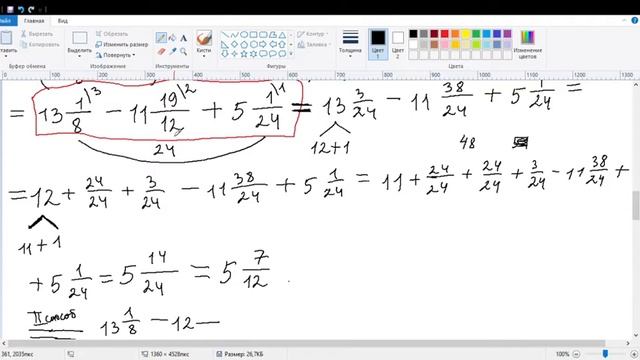 Файл Главная Вид
Вставить
Вырезать
Копировать
Выделить
Обрезать
Изменить размер
Повернуть
Кисти
Контур
Заливка
Толщина
Цвет 1
Цвет 2
Изменение цветов
Буфер обмена Изображение Инструменты Фигуры Цвета
100 200 300 400 500 600 700 800 900 1000 1100 1200 1300
= 13 1/8 \3 − 11 19/12 \2 + 5 1/24 \1 = 13 3/24 − 11 38/24 + 5 1/24 =
24
12+1
48
= 12 + 24/24 + 3/24 − 11 38/24 + 5 1/24 = 11 + 24/24 + 24/24 + 3/24 − 11 38/24 +
11+1
+ 5 1/24 = 5 14/24 = 5 7/12 .
II способ 13 1/8 − 12 −
361, 2035пкс 1360 × 4528пкс Размер: 26,7КБ 100%